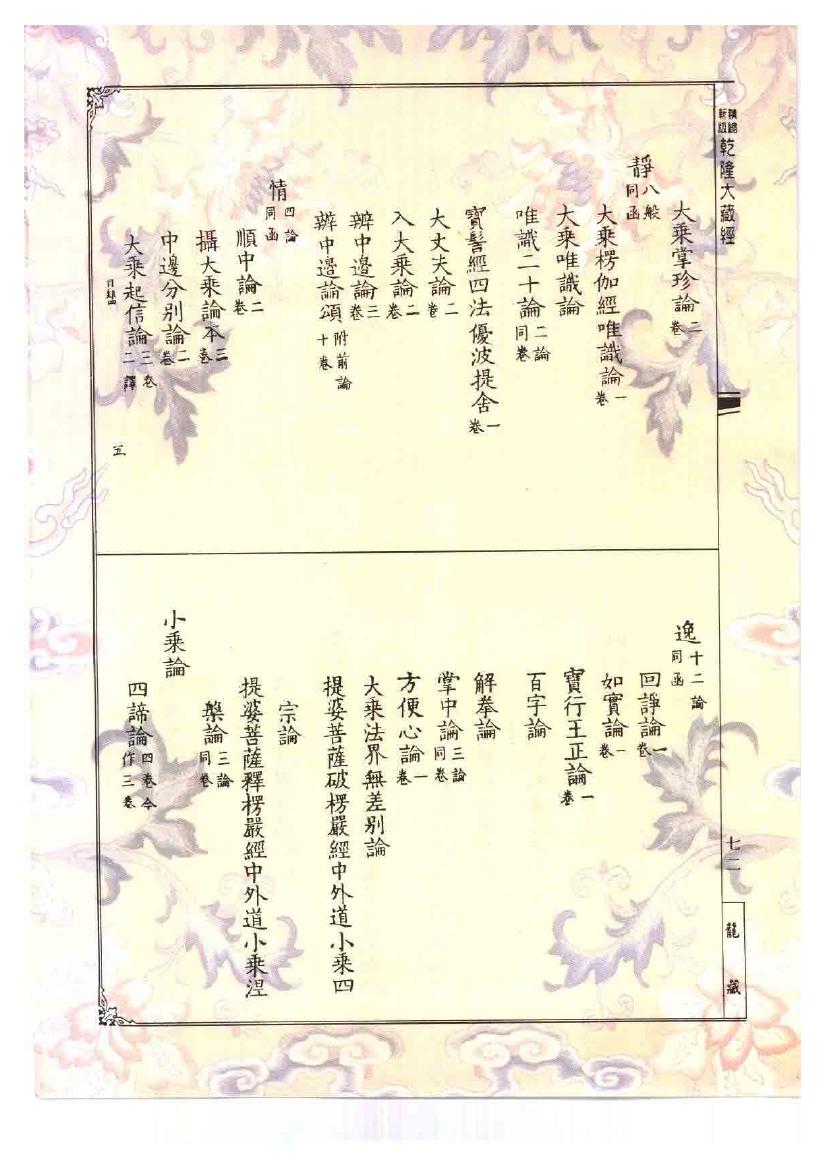 新版 精縮 乾隆大藏經
大乘掌珍論二卷
靜八般同函
大乘楞伽經唯識論一卷
大乘唯識論
唯識二十論二論同卷
寶髻經四法優波提舍一卷
大丈夫論二卷
入大乘論二卷
辨中邊論三卷
辨中邊論頌附前論十卷
情四論同函
順中論二卷
攝大乘論本三卷
中邊分別論二卷
大乘起信論三卷二譯
五
逸十二論同函
回諍論一卷
如實論一卷
寶行王正論一卷
百字論
解拳論
掌中論三論同卷
方便心論一卷
大乘法界無差別論
提婆菩薩破楞嚴經中外道小乘四
宗論
提婆菩薩釋楞嚴經中外道小乘涅
槃論三論同卷
小乘論
四諦論四卷今作三卷
七二
龍藏